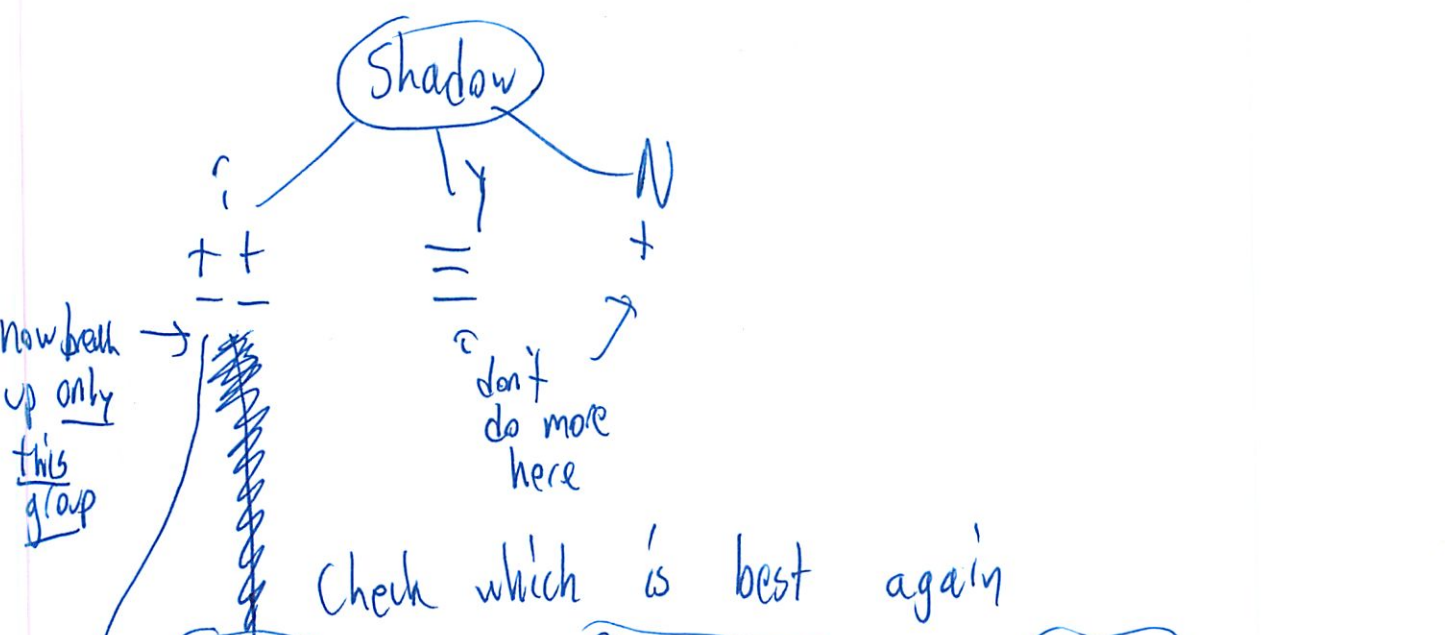 Shadow
? Y N
+ + +
- - - - -
now break
up only
this
group
don't
do more
here
Check which is best again